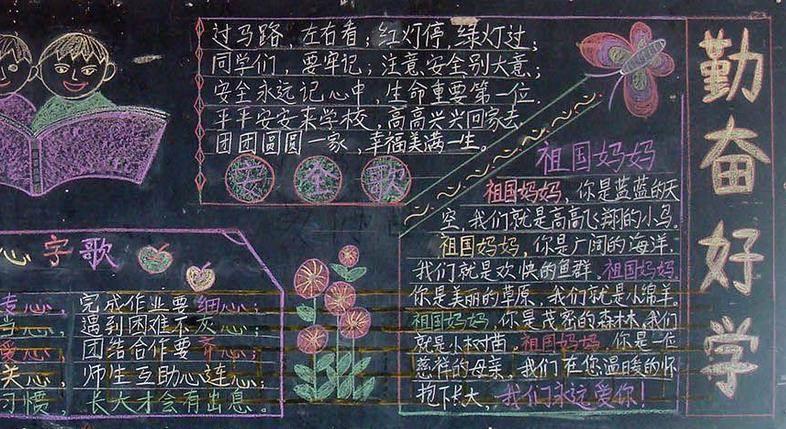 过马路，左右看；红灯停，绿灯过；
同学们，要牢记；注意安全别大意；
安全永远记心中，生命重要第一位.
平平安安来学校，高高兴兴回家去.
团团圆圆一家，幸福美满一生。
安全歌
祖国妈妈
祖国妈妈，你是蓝蓝的天
空，我们就是高高飞翔的小鸟。
祖国妈妈，你是广阔的海洋.
我们就是欢快的鱼群.祖国妈妈，
你是美丽的草原，我们就是小绵羊。
祖国妈妈，你是茂密的森林，我们
就是小树苗。祖国妈妈，你是一位
慈祥的母亲，我们在您温暖的怀
抱下长大，我们永远爱你！
勤奋好学
心字歌
心，完成作业要细心；
心，遇到困难不灰心；
爱心，团结合作要齐心；
关心，师生互助心连心；
习惯，长大才会有出息。